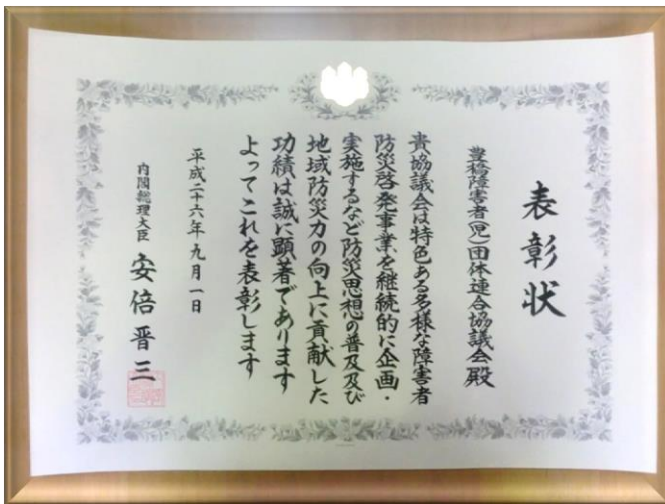 表彰状
豊橋障害者(児)団体連合協議会殿
貴協議会は特色ある多様な障害者
防災啓発事業を継続的に企画・
実施するなど防災思想の普及及び
地域防災力の向上に貢献した
功績は誠に顕著であります
よってこれを表彰します
平成二十六年九月一日
内閣総理大臣 安倍晋三